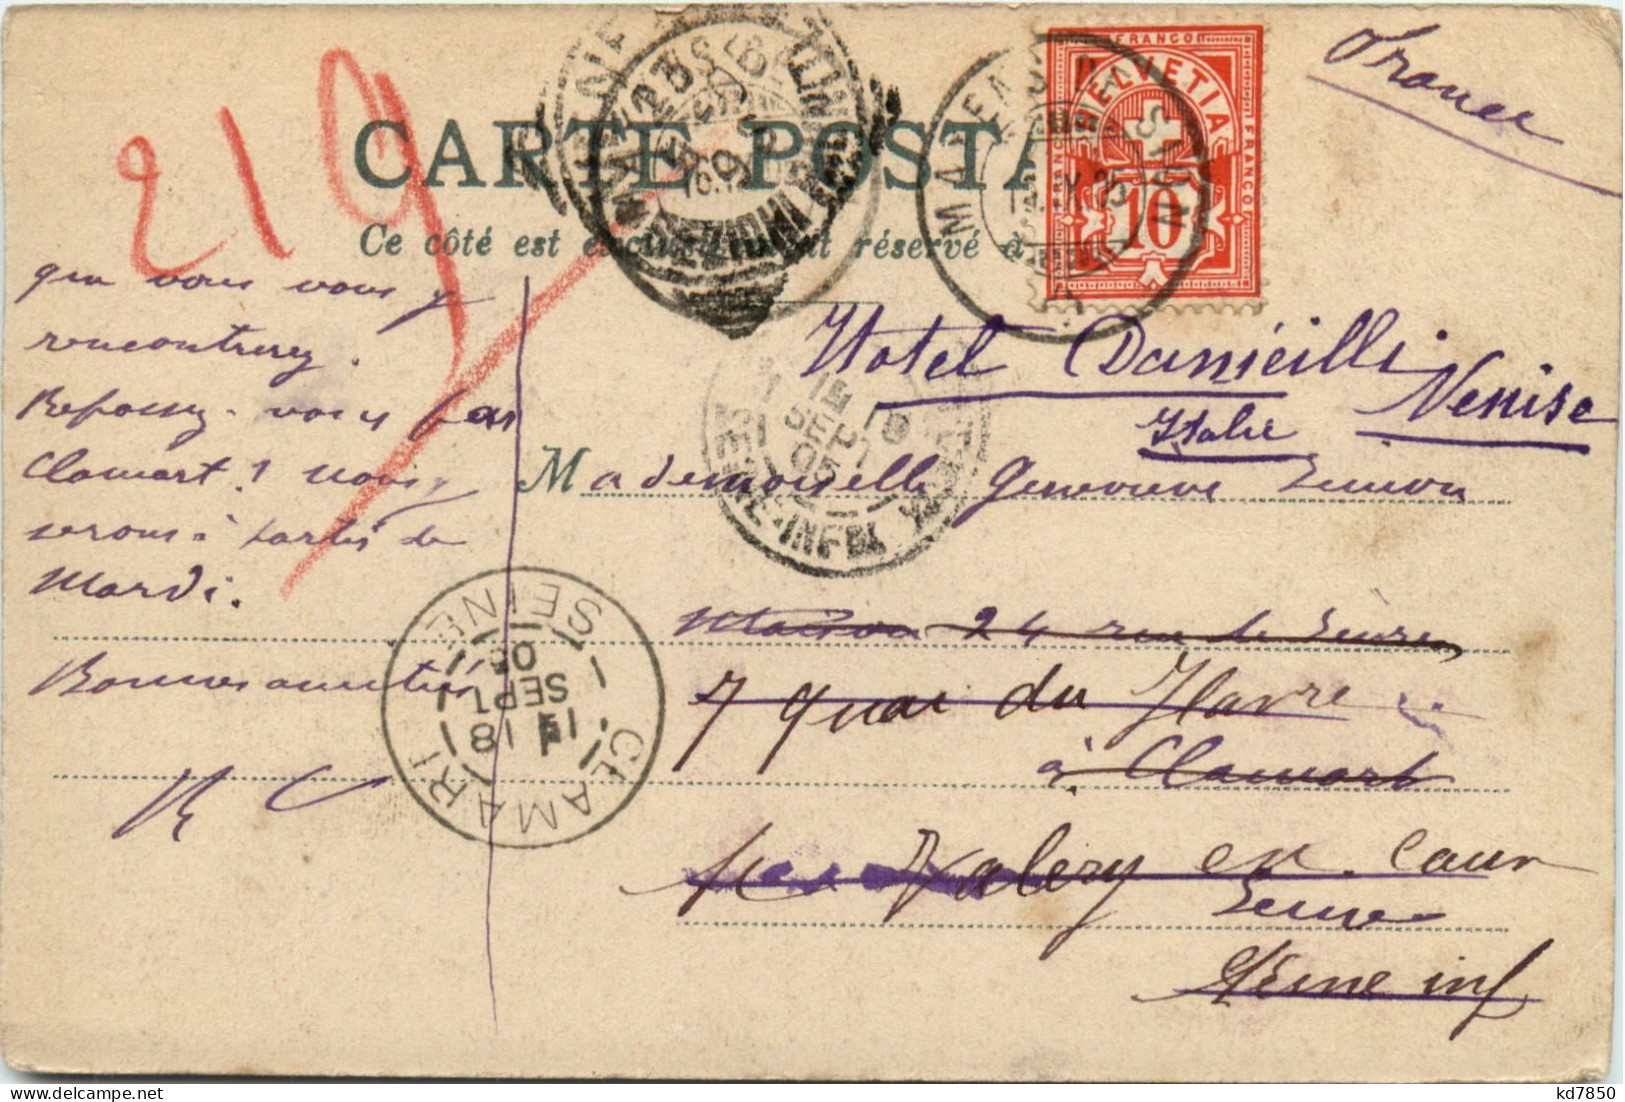 France
CARTE POSTA
Ce côté est exclusivement réservé à
FRANCO
HELVETIA
FRANCO
FRANCO
10
219
que vous vous y
rencontrerez.
Repassez-vous par
Clamart? Nous
serons partis de
Mardi.
Bonnes amitiés
R C
Hotel Danieilli
Venise
Italie
Mademoiselle Genevieve Simon
Maison 24 rue de Sèvres
7 quai du Havre
à Clamart
St Valery en Caux
Seine
Seine inf
CLAMART
SEINE
SEPT
05
SEPT
05
INFRE
kd7850